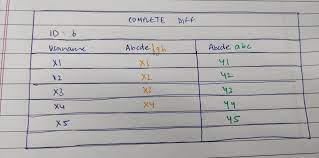 COMPLETE DIFF
ID : 6
Abcde fgh Abcde abc
X1 X1 Y1
X2 X2 Y2
X3 X3 Y3
X4 X4 Y4
X5 Y5